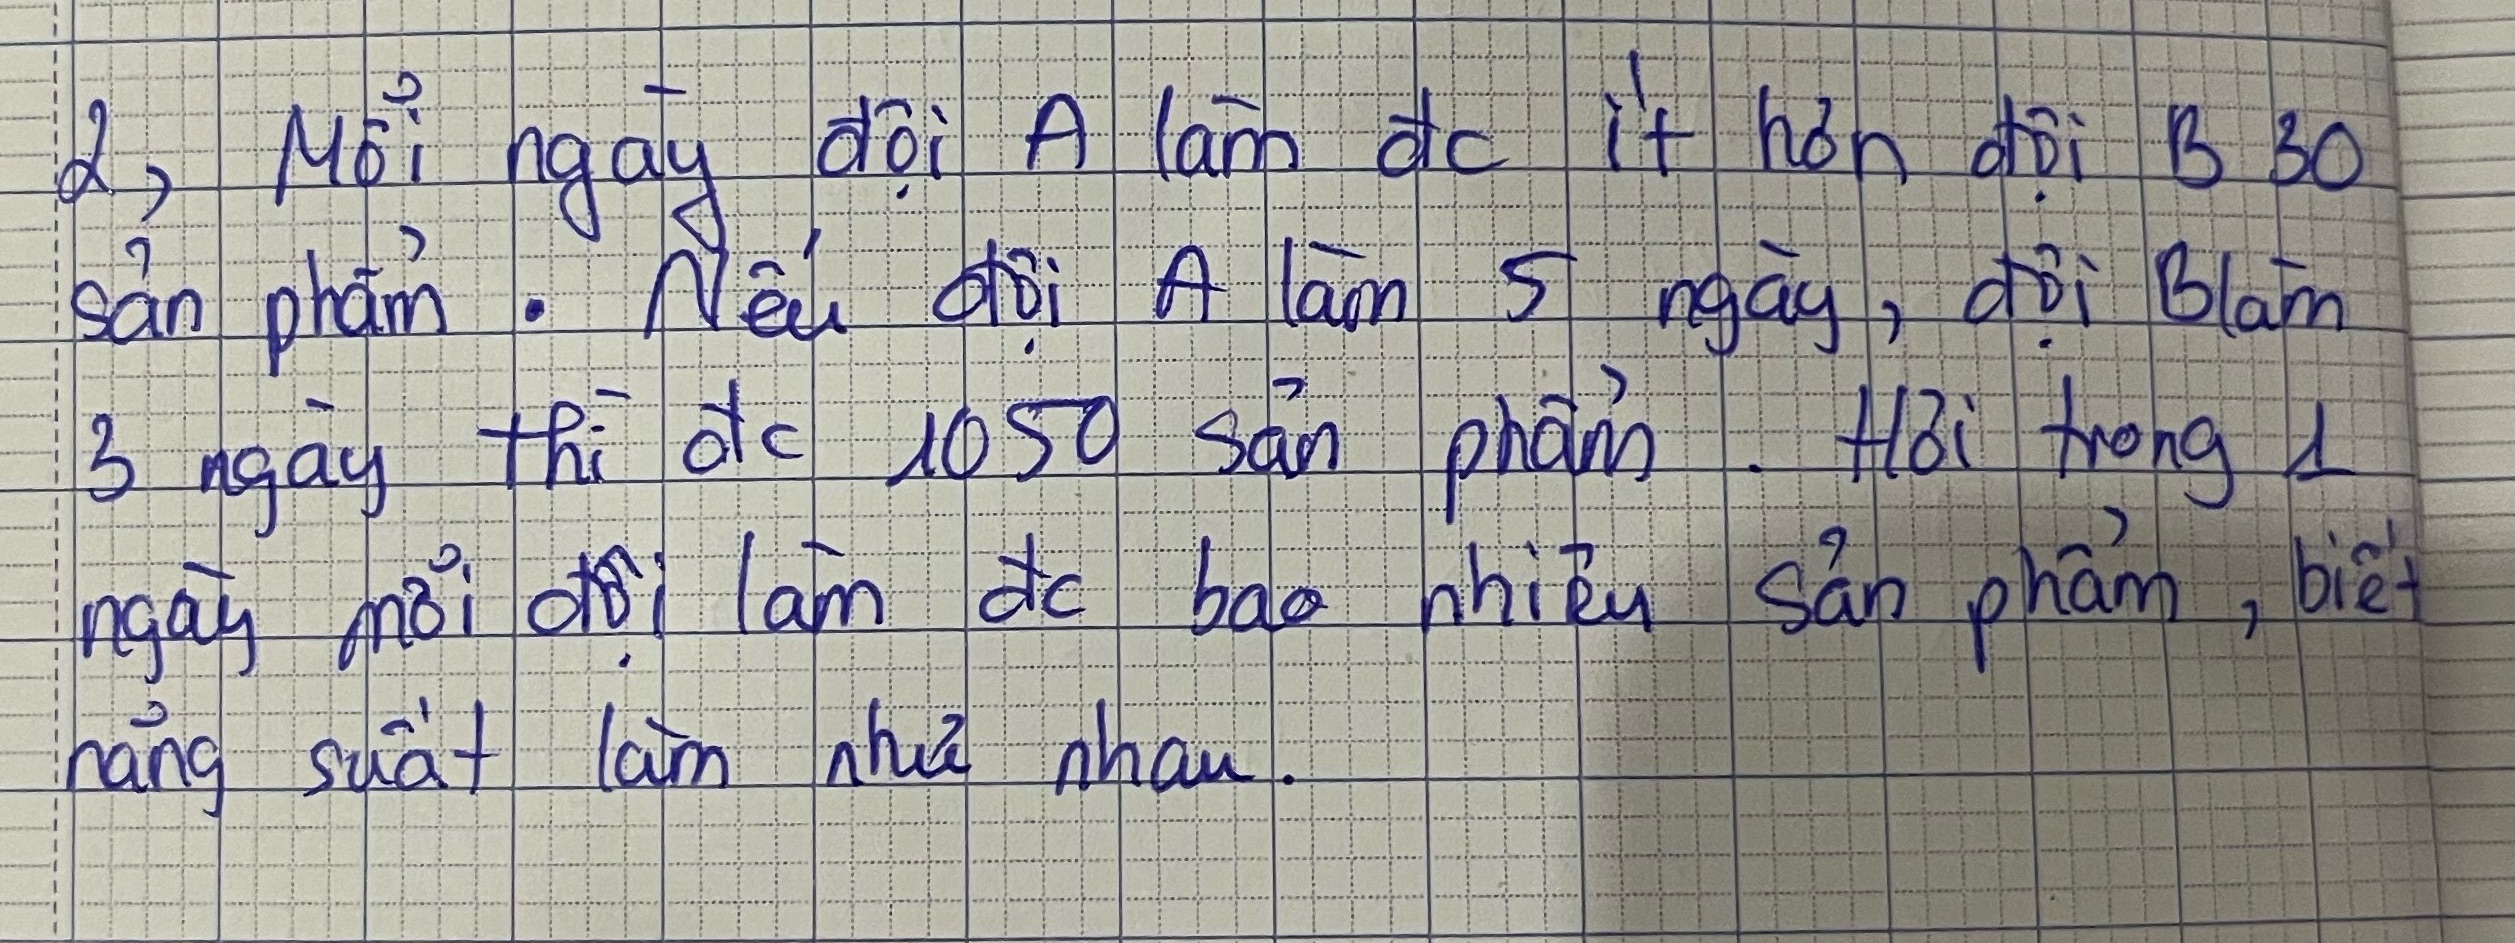 2, Mỗi ngày đội A làm đc ít hơn đội B 30
sản phẩm. Nếu đội A làm 5 ngày, đội B làm
3 ngày thì đc 1050 sản phẩm. Hỏi trong 1
ngày mỗi đội làm đc bao nhiêu sản phẩm, biết
năng suất làm như nhau.